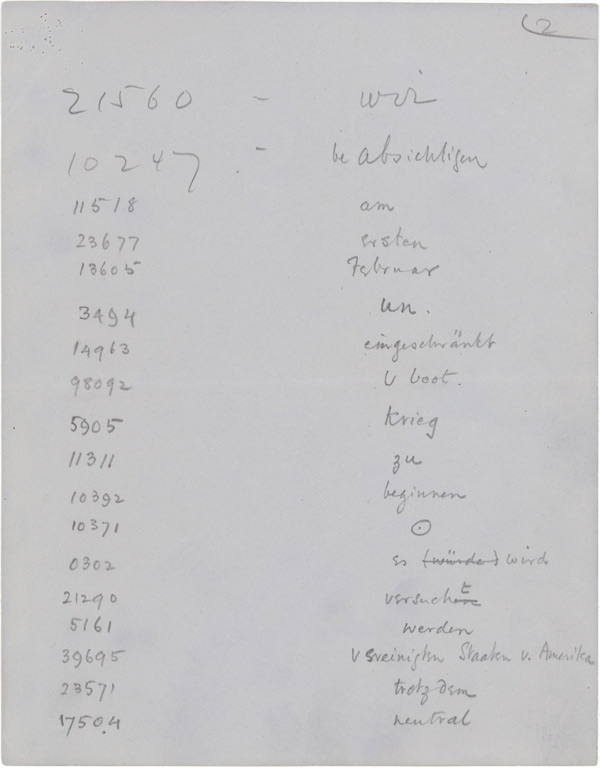 2
21560 - wir
10247 . - beabsichtigen
11518 am
23677 ersten
13605 Februar
3494 un.
14963 eingeschränkt
98092 U boot.
5905 Krieg
11311 zu
10392 beginnen
10371 ⊙
0302 es (würde) wird
21290 versucht
5161 werden
39695 Vereinigten Staaten v. Amerika
23571 trotzdem
17504 neutral